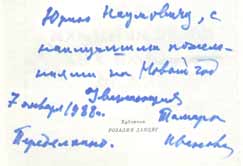 Юрию Наумовичу, с
наилучшими пожела-
ниями на Новый год
Уважающая
7 января 1988 г.
Тамара
Художник
Переделкино.
Иванова